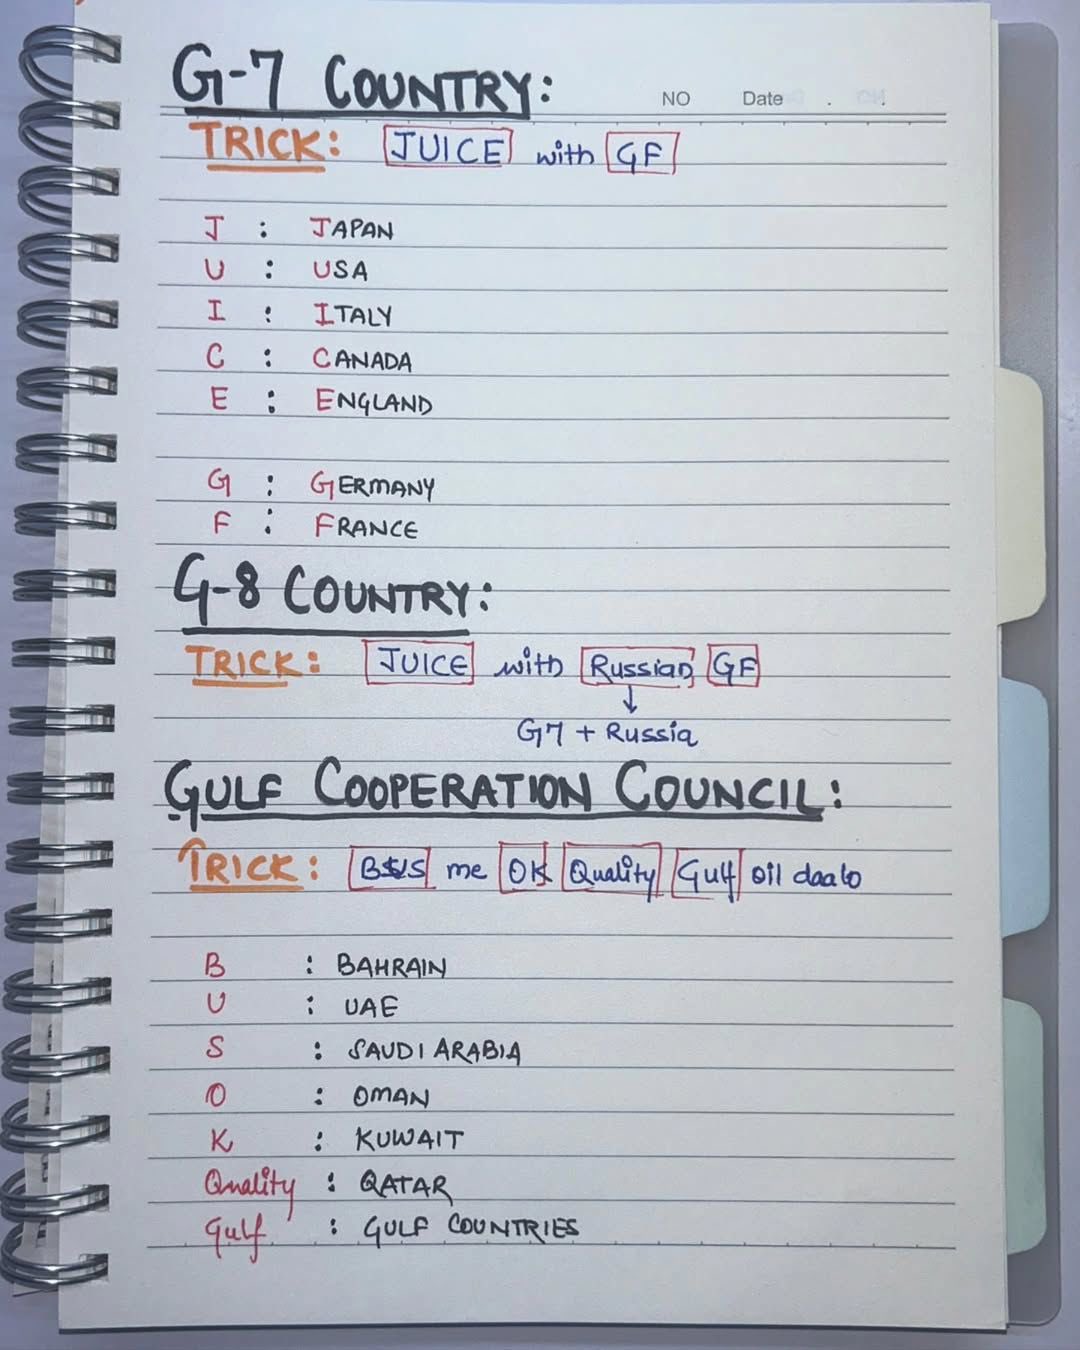 G-7 COUNTRY:
NO Date . .
TRICK: JUICE with GF
J : JAPAN
U : USA
I : ITALY
C : CANADA
E : ENGLAND
G : GERMANY
F : FRANCE
G-8 COUNTRY:
TRICK: JUICE with Russian GF
↓
G7 + Russia
GULF COOPERATION COUNCIL:
TRICK: BUS me OK Quality Gulf oil daalo
B : BAHRAIN
U : UAE
S : SAUDI ARABIA
O : OMAN
K : KUWAIT
Quality : QATAR
Gulf : GULF COUNTRIES